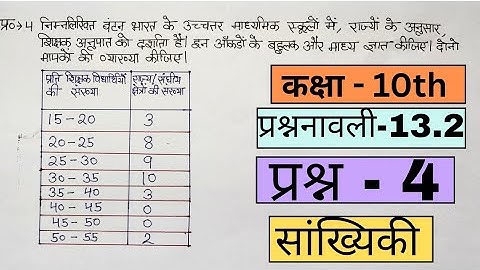 प्र०→4 निम्नलिखित बंटन भारत के उच्चत्तर माध्यमिक स्कूलों में, राज्यों के अनुसार,
शिक्षक अनुपात को दर्शाता है। इन आँकड़ों के बहुलक और माध्य ज्ञात कीजिए। दोनो
मापकों की व्याख्या कीजिए।
प्रति शिक्षक विद्यार्थियों की संख्या राज्य/संघीय क्षेत्रों की संख्या
15-20 3
20-25 8
25-30 9
30-35 10
35-40 3
40-45 0
45-50 0
50-55 2
कक्षा - 10th
प्रश्नावली-13.2
प्रश्न - 4
सांख्यिकी